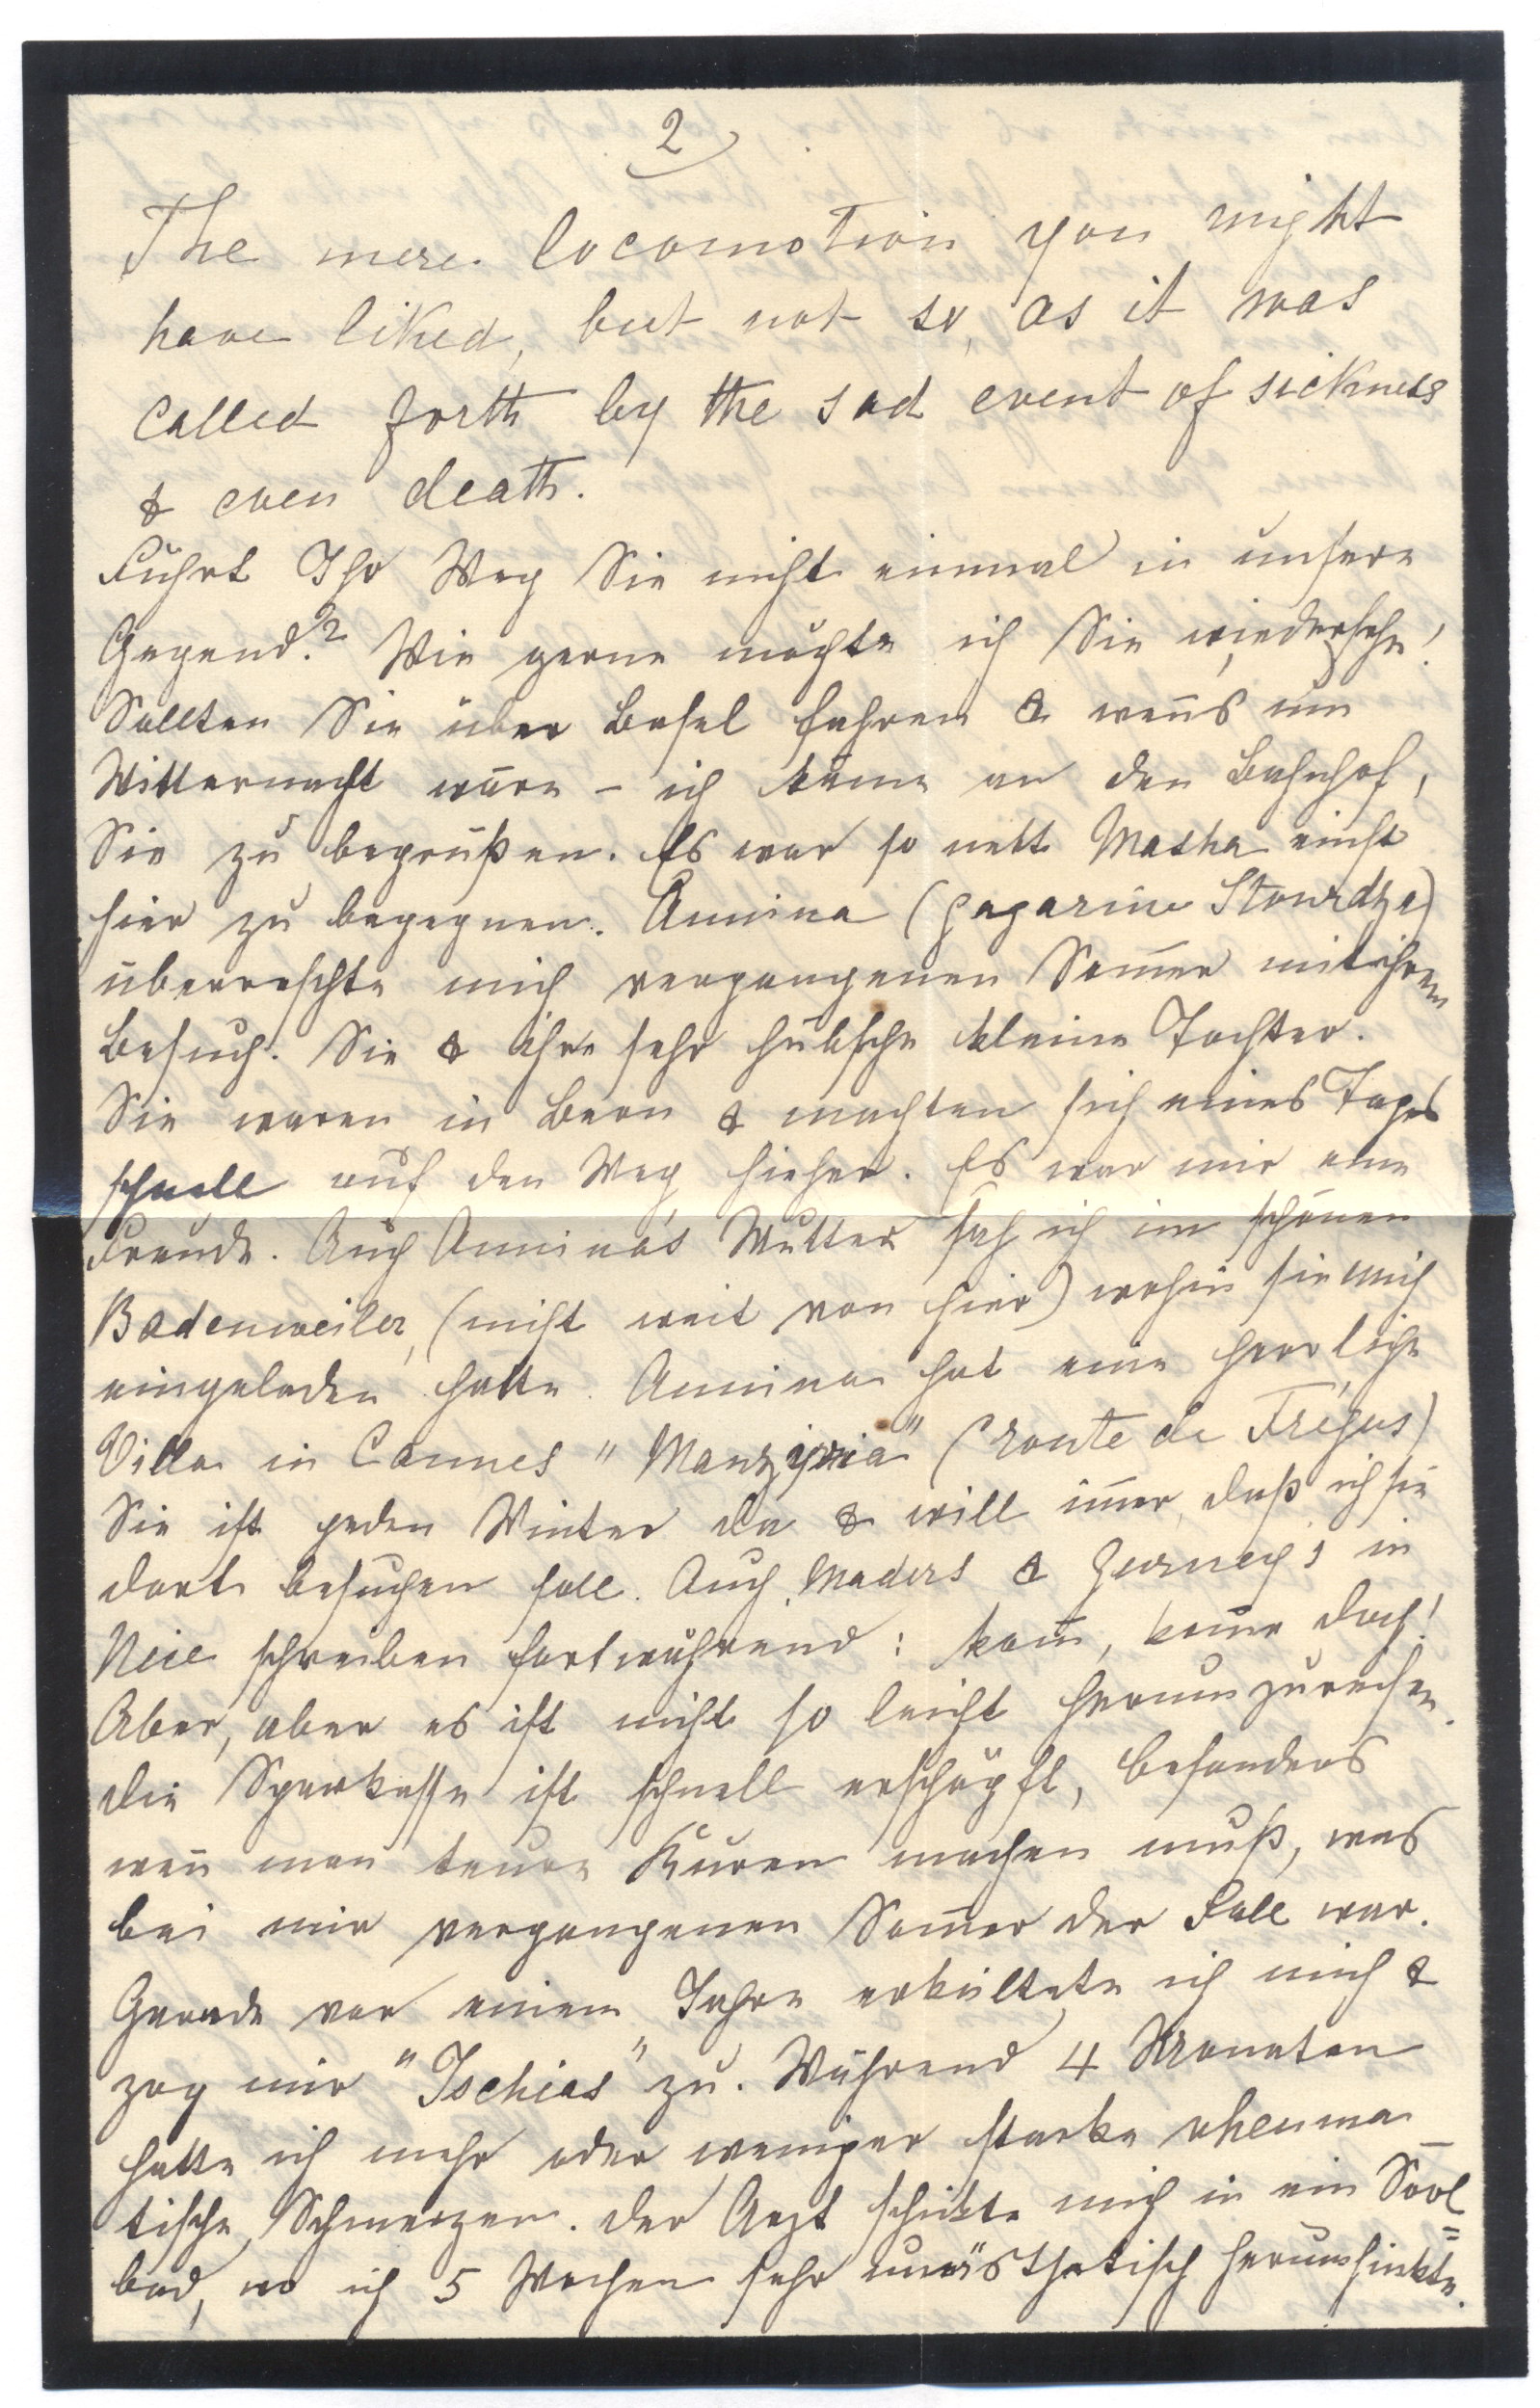 2
The mere locomotion you might
have liked, but not so, as it was
called forth by the sad event of sickness
& even death.
Führt Ihr Weg Sie nicht einmal in unsere
Gegend? Wie gerne möchte ich Sie wiedersehn!
Sollten Sie über Basel fahren & wen̄s um
Mitternacht wäre – ich käme an den Bahnhof,
Sie zu begrüßen. Es war so nett Masha einst
hier zu begegnen. Annina (Gagarine Stourdza)
überraschte mich vergangenen Som̄er mit ihrem
Besuch. Sie & ihre sehr hübsche kleine Tochter.
Sie waren in Bern & machten sich eines Tages
schnell auf den Weg hieher. Es war mir eine
Freude. Auch Annina's Mutter sah ich im schönen
Badenweiler, (nicht weit von hier) wohin sie mich
eingeladen hatte. Annina hat eine herrliche
Villa in Cannes " " (route de Fréjus)
Sie ist jeden Winter da & will im̄er, daß ich sie
dort besuchen soll. Auch Maders & Gurney's in
Nice schreiben fortwährend: kom̄, kom̄e doch!
Aber, aber es ist nicht so leicht herumzureisen.
die Sparkasse ist schnell erschöpft, besonders
wen̄ man teure Kuren machen muß, was
bei mir vergangenen Som̄er der Fall war.
Gerade vor einem Jahre erkältete ich mich &
zog mir "Ischias" zu. Während 4 Monaten
hatte ich mehr oder weniger starke rheuma
tische Schmerzen. der Arzt schickte mich in ein Sool=
bad, wo ich 5 Wochen sehr unästhetisch herumhinkte.